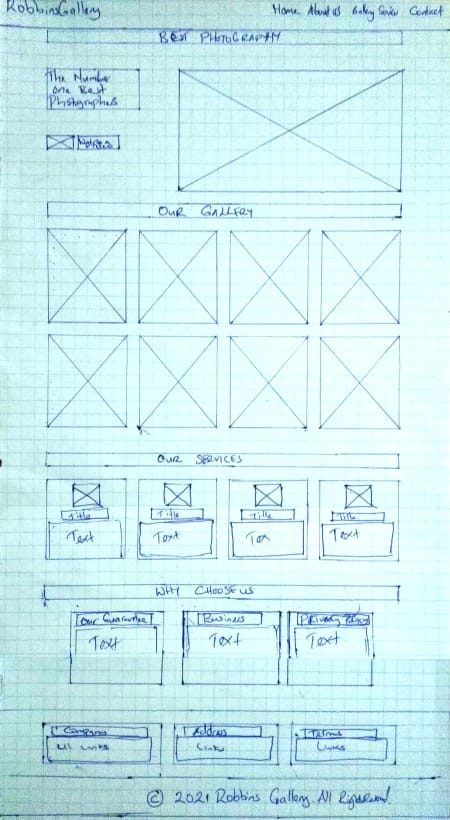 RobbinsGallery
Home About us Gallery Service Contact
BEST PHOTOGRAPHY
The Number
One Best
Photographers
OUR GALLERY
OUR SERVICES
Title Title Title Title
Text Text Tex Text
WHY CHOOSE US
Our Guarantee Business Privacy Policy
Text Text Text
Company Address Terms
Links Links Links
© 2021 Robbins Gallery. All Right Reserved.